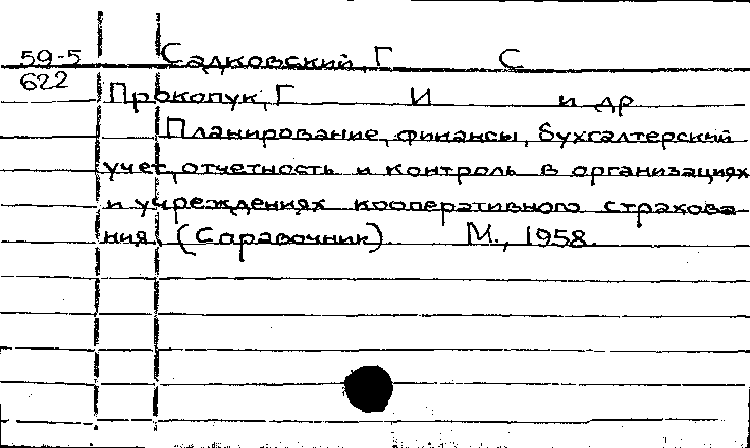 59-5 Садковский, Г С
622 Прокопук, Г И и др
Планирование, финансы, бухгалтерский
учет, отчетность и контроль в организациях
и учреждениях кооперативного страхова-
ния. (Справочник). М., 1958.